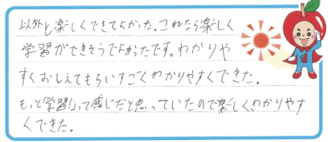 以外と楽しくできてよかった。これなら楽しく
学習ができそうでよかったです。わかりや
すくおしえてもらいすごくわかりやすくできた。
もっと「学習」って感じだと思っていたので楽しくわかりやす
くできた。